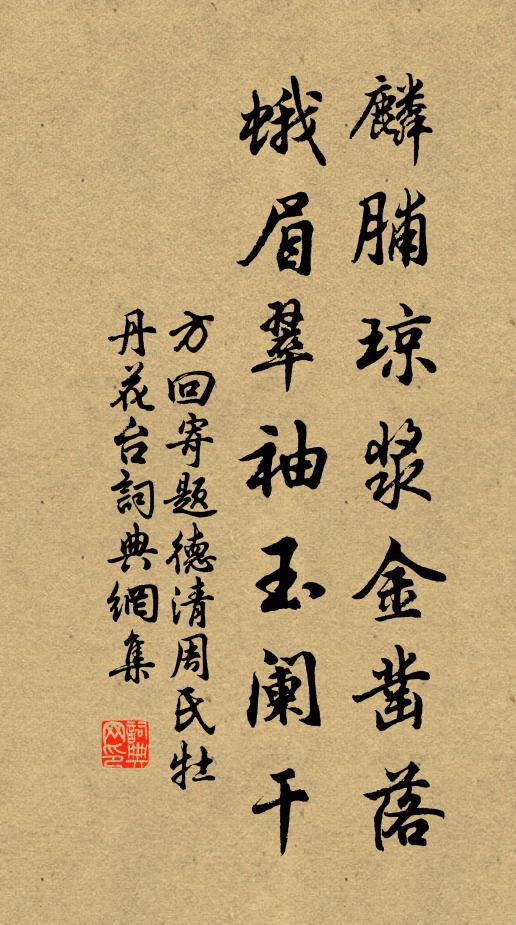 麟脯琼浆金凿落
蛾眉翠袖玉阑干
方回寄题德清周民牡
丹花台詞典網集
詞典网印